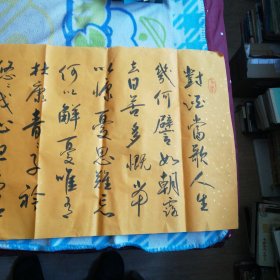 對酒當歌人生
幾何譬如朝露
去日苦多慨當
以慷憂思難忘
何以解憂唯有
杜康青青子衿
悠悠我心但